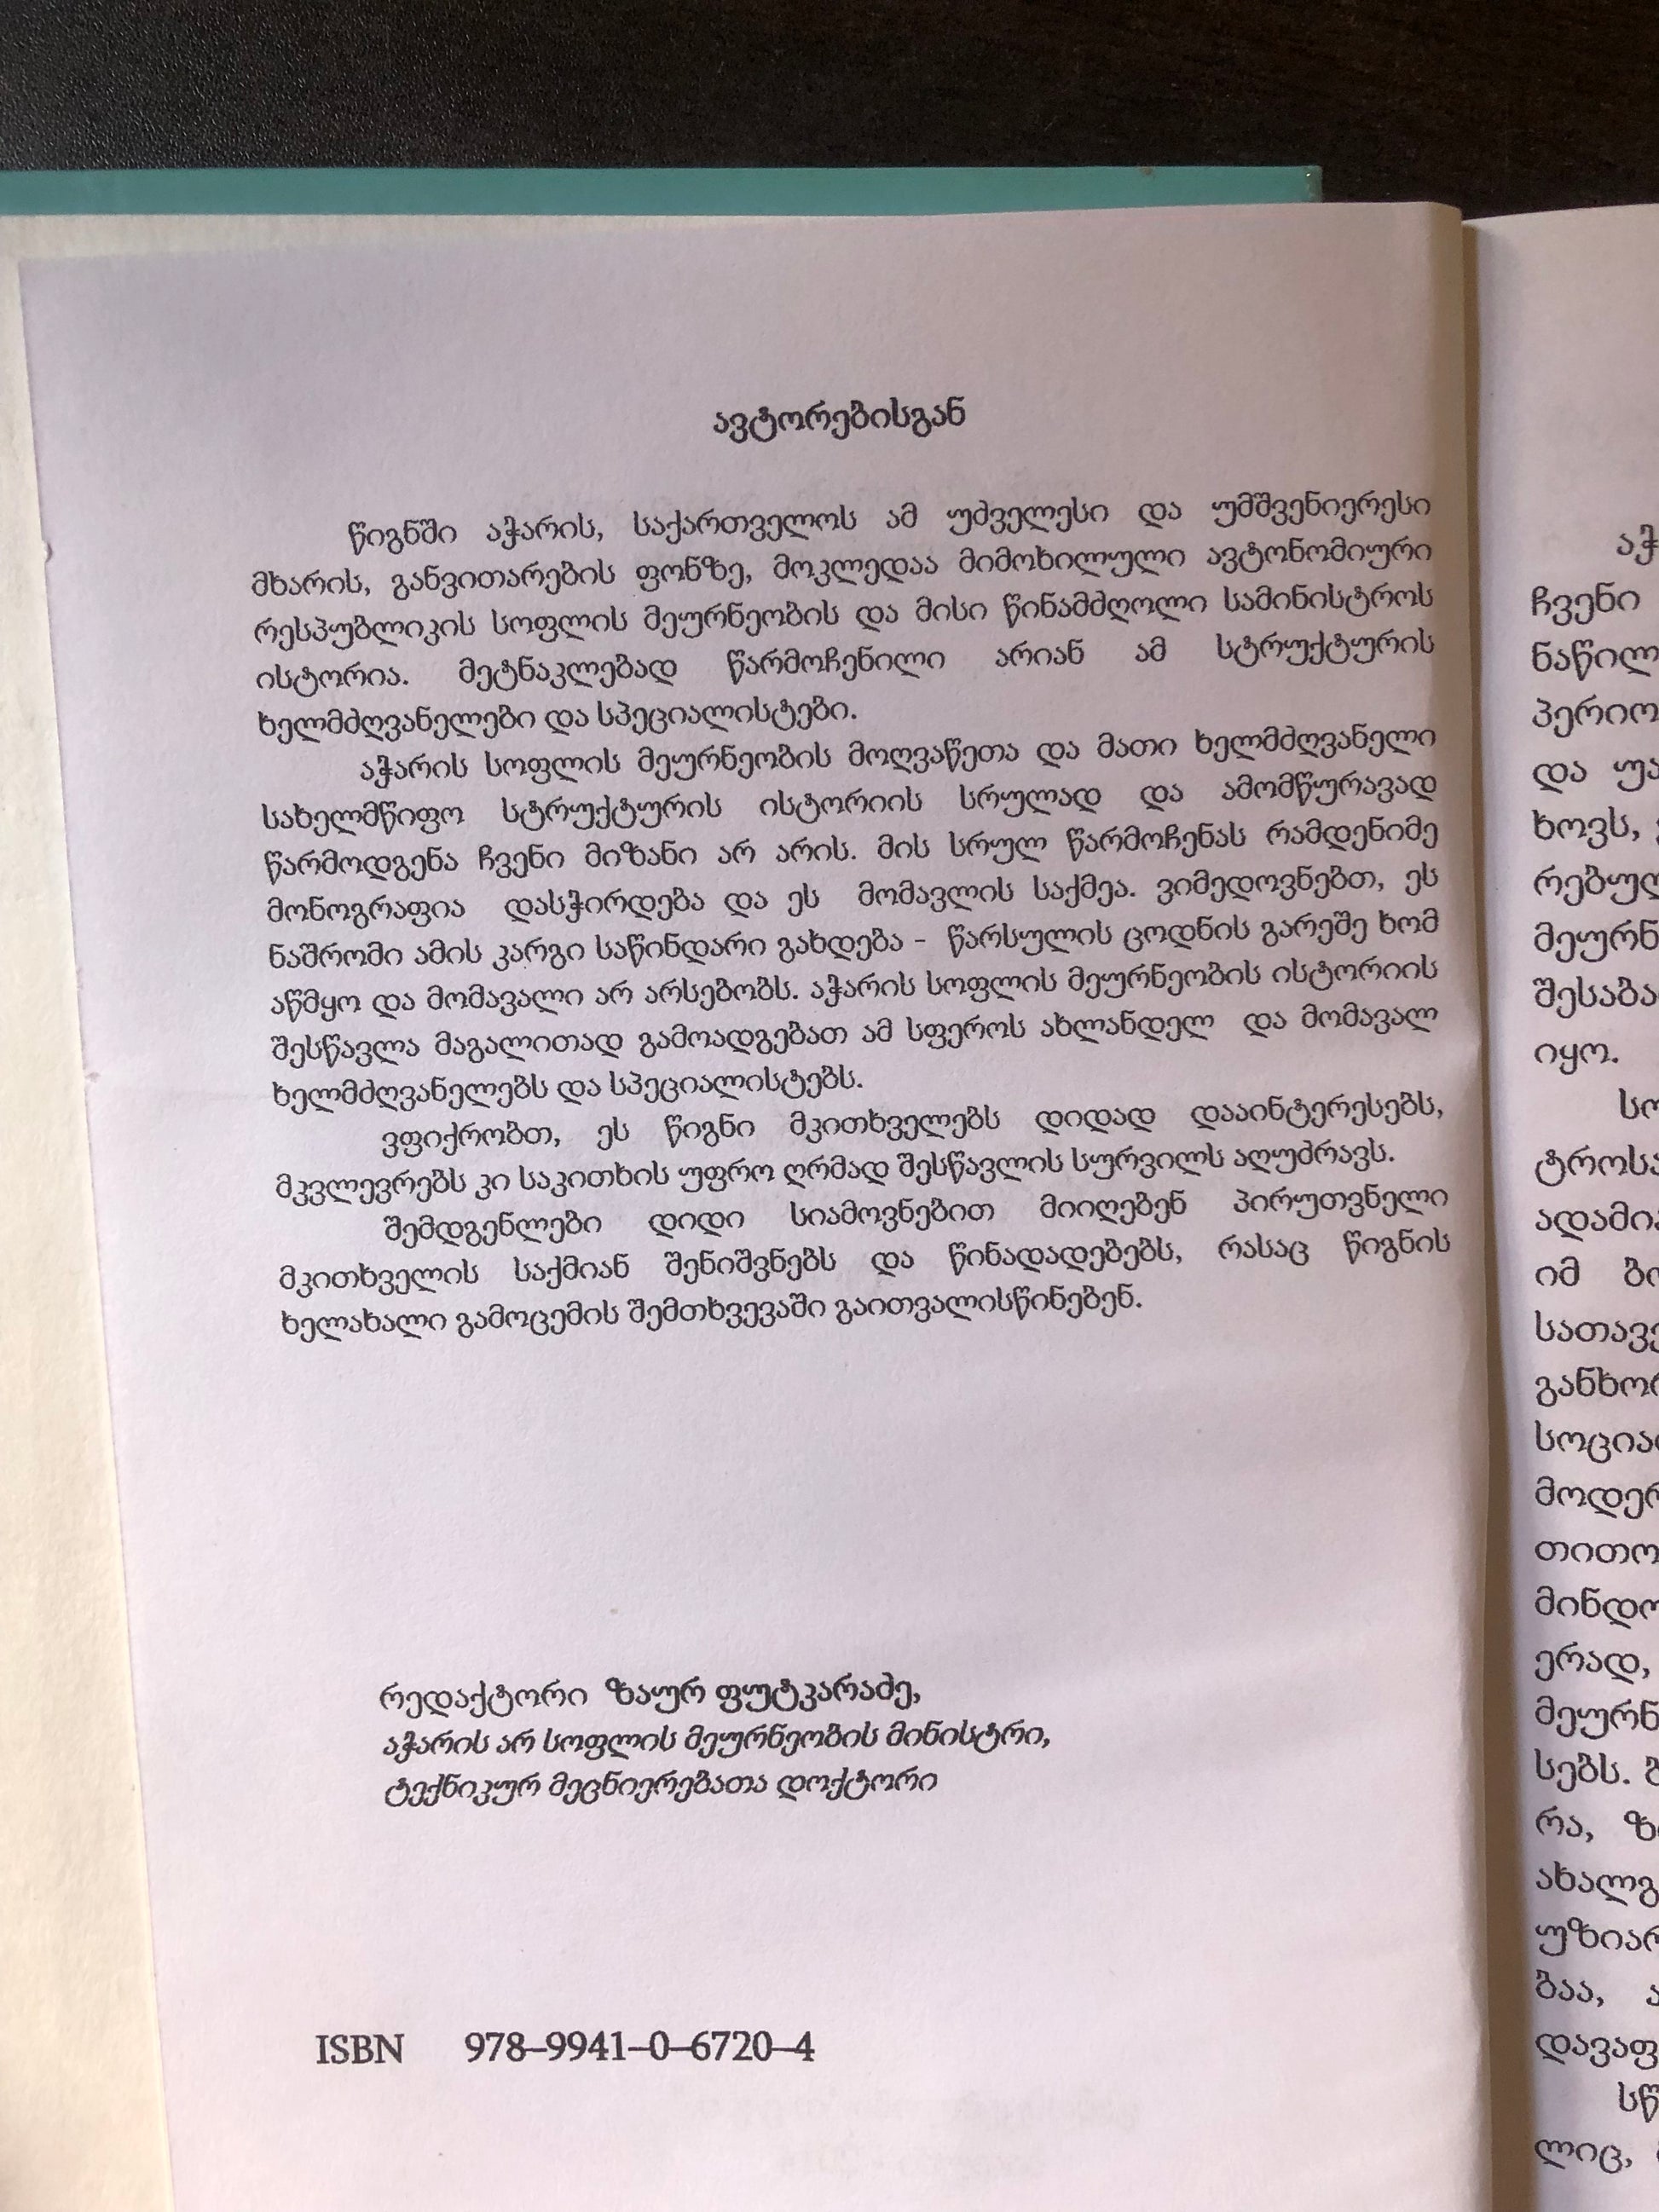 ავტორებისგან
წიგნში აჭარის, საქართველოს ამ უძველესი და უმშვენიერესი
მხარის, განვითარების ფონზე, მოკლედაა მიმოხილული ავტონომიური
რესპუბლიკის სოფლის მეურნეობის და მისი წინამძღოლი სამინისტროს
ისტორია. მეტნაკლებად წარმოჩენილი არიან ამ სტრუქტურის
ხელმძღვანელები და სპეციალისტები.
აჭარის სოფლის მეურნეობის მოღვაწეთა და მათი ხელმძღვანელი
სახელმწიფო სტრუქტურის ისტორიის სრულად და ამომწურავად
წარმოდგენა ჩვენი მიზანი არ არის. მის სრულ წარმოჩენას რამდენიმე
მონოგრაფია დასჭირდება და ეს მომავლის საქმეა. ვიმედოვნებთ, ეს
ნაშრომი ამის კარგი საწინდარი გახდება – წარსულის ცოდნის გარეშე ხომ
აწმყო და მომავალი არ არსებობს. აჭარის სოფლის მეურნეობის ისტორიის
შესწავლა მაგალითად გამოადგებათ ამ სფეროს ახლანდელ და მომავალ
ხელმძღვანელებს და სპეციალისტებს.
ვფიქრობთ, ეს წიგნი მკითხველებს დიდად დააინტერესებს,
მკვლევრებს კი საკითხის უფრო ღრმად შესწავლის სურვილს აღუძრავს.
შემდგენლები დიდი სიამოვნებით მიიღებენ პირუთვნელი
მკითხველის საქმიან შენიშვნებს და წინადადებებს, რასაც წიგნის
ხელახალი გამოცემის შემთხვევაში გაითვალისწინებენ.
რედაქტორი ზაურ ფუტკარაძე,
აჭარის არ სოფლის მეურნეობის მინისტრი,
ტექნიკურ მეცნიერებათა დოქტორი
ISBN 978–9941–0–6720–4
ჩვენი
და
ხოვს,
იყო.
იმ
ერად,
სებს.
რა,
ბაა,
ლიც,